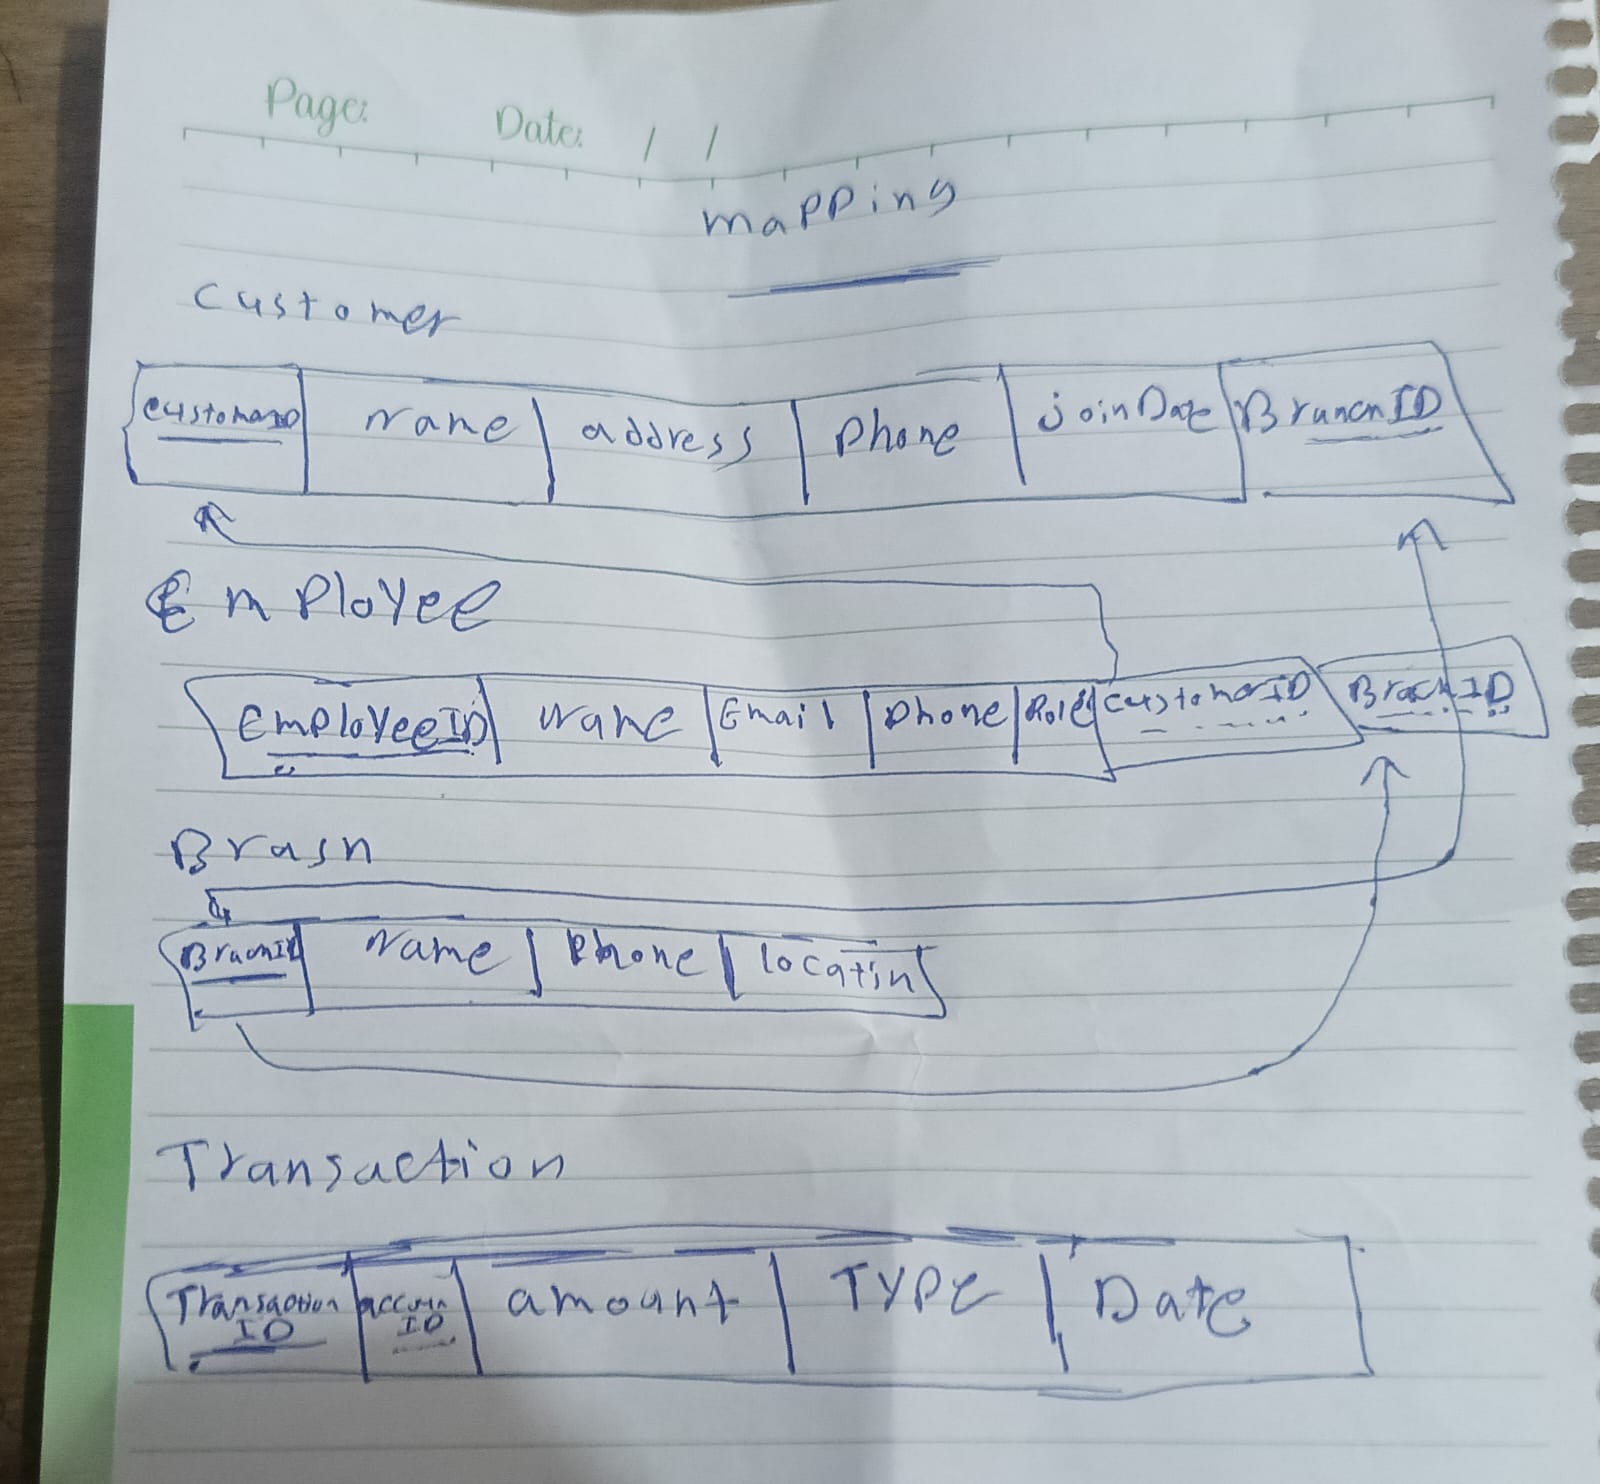 Page: Date: / /
mapping
Customer
CustomerID name address Phone joinDate BranchID
Employee
EmployeeID name Email Phone Role CustomerID BrachID
Brash
BrachID name Phone locatin
Transaction
Transaction ID accoun ID amount TYPE Date